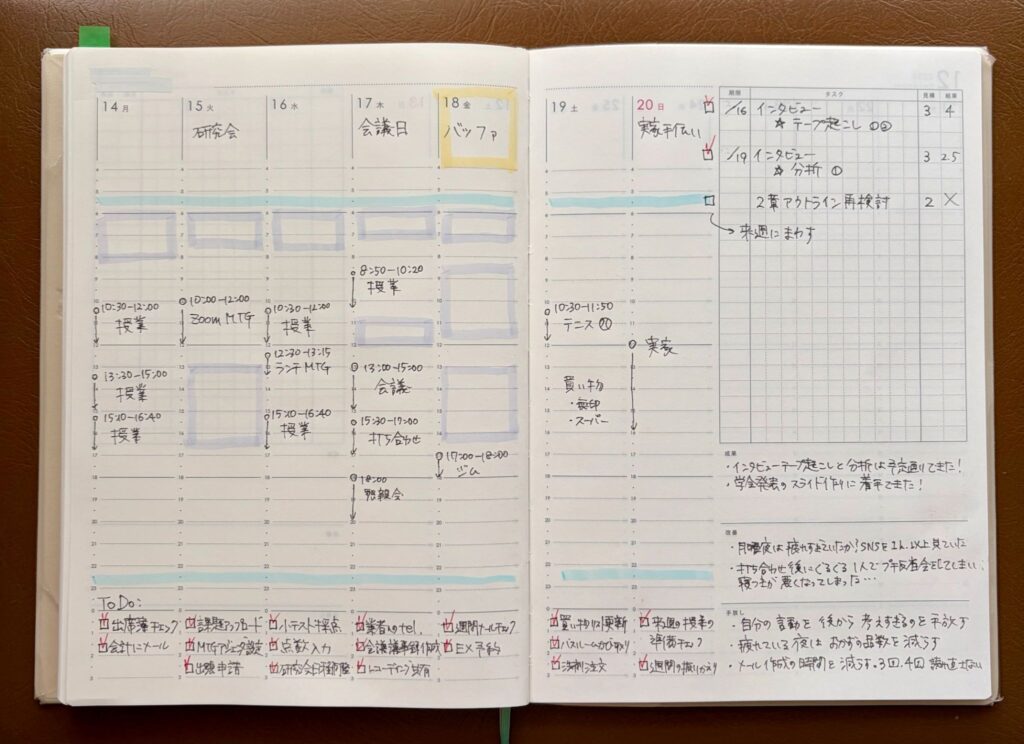 14 月
15 火
研究会
16 水
17 木
会議日
18 金
バッファ
10:30-12:00
授業
13:30-15:00
授業
15:10-16:40
授業
10:00-12:00
Zoom MTG
10:30-12:00
授業
12:30-13:15
ランチMTG
15:10-16:40
授業
8:50-10:20
授業
13:00-15:00
会議
15:30-17:00
打ち合わせ
18:00
懇親会
17:00-18:00
ジム
ToDo:
出席簿チェック
会計にメール
課題アップロード
MTGアジェンダ設定
出張申請
小テスト採点
点数入力
研究会日程調整
業者へのtel.
会議議事録作成
レコーディング共有
週間メールチェック
EX予約
19 土
20 日
実家手伝い
10:30-11:50
テニス
買い物
・無印
・スーパー
実家
買い物リスト更新
バスルームカビ取り
洗剤注文
来週の授業の
準備チェック
1週間の振りかえり
期限 タスク 見積 結果
/16 インタビュー 3 4
☆ テープ起こし ①②
/19 インタビュー 3 2.5
☆ 分析 ①
2章アウトライン再検討 2 ×
→ 来週にまわす
成果
・インタビューテープ起こしと分析は予定通りできた!
・学会発表のスライド作りに着手できた!
改善
・月曜夜は疲れすぎていたか?SNSを1h以上見ていた
・打ち合わせ後にぐるぐる1人でプチ反省会をしてしまい、
寝つきが悪くなってしまった…
手放し
・自分の言動を後から考えすぎるのを手放す
・疲れている夜はおかずの品数を減らす
・メール作成の時間を減らす。3回、4回読み直さない